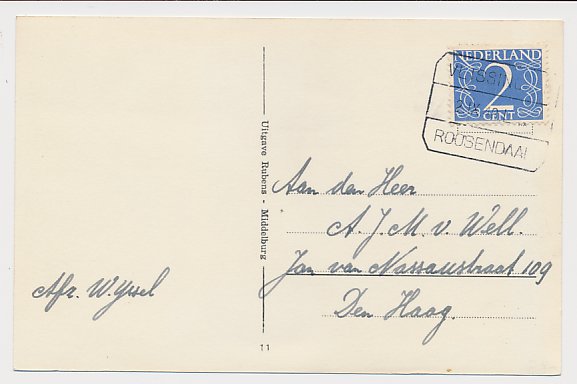 NEDERLAND
2
CENT
VLISSINGEN
ROOSENDAAL
Uitgave Rubens - Middelburg
Aan den Heer
A. J. M. v. Well.
Jan van Nassaustraat 109
Den Haag.
Afz. W. Yssel
11